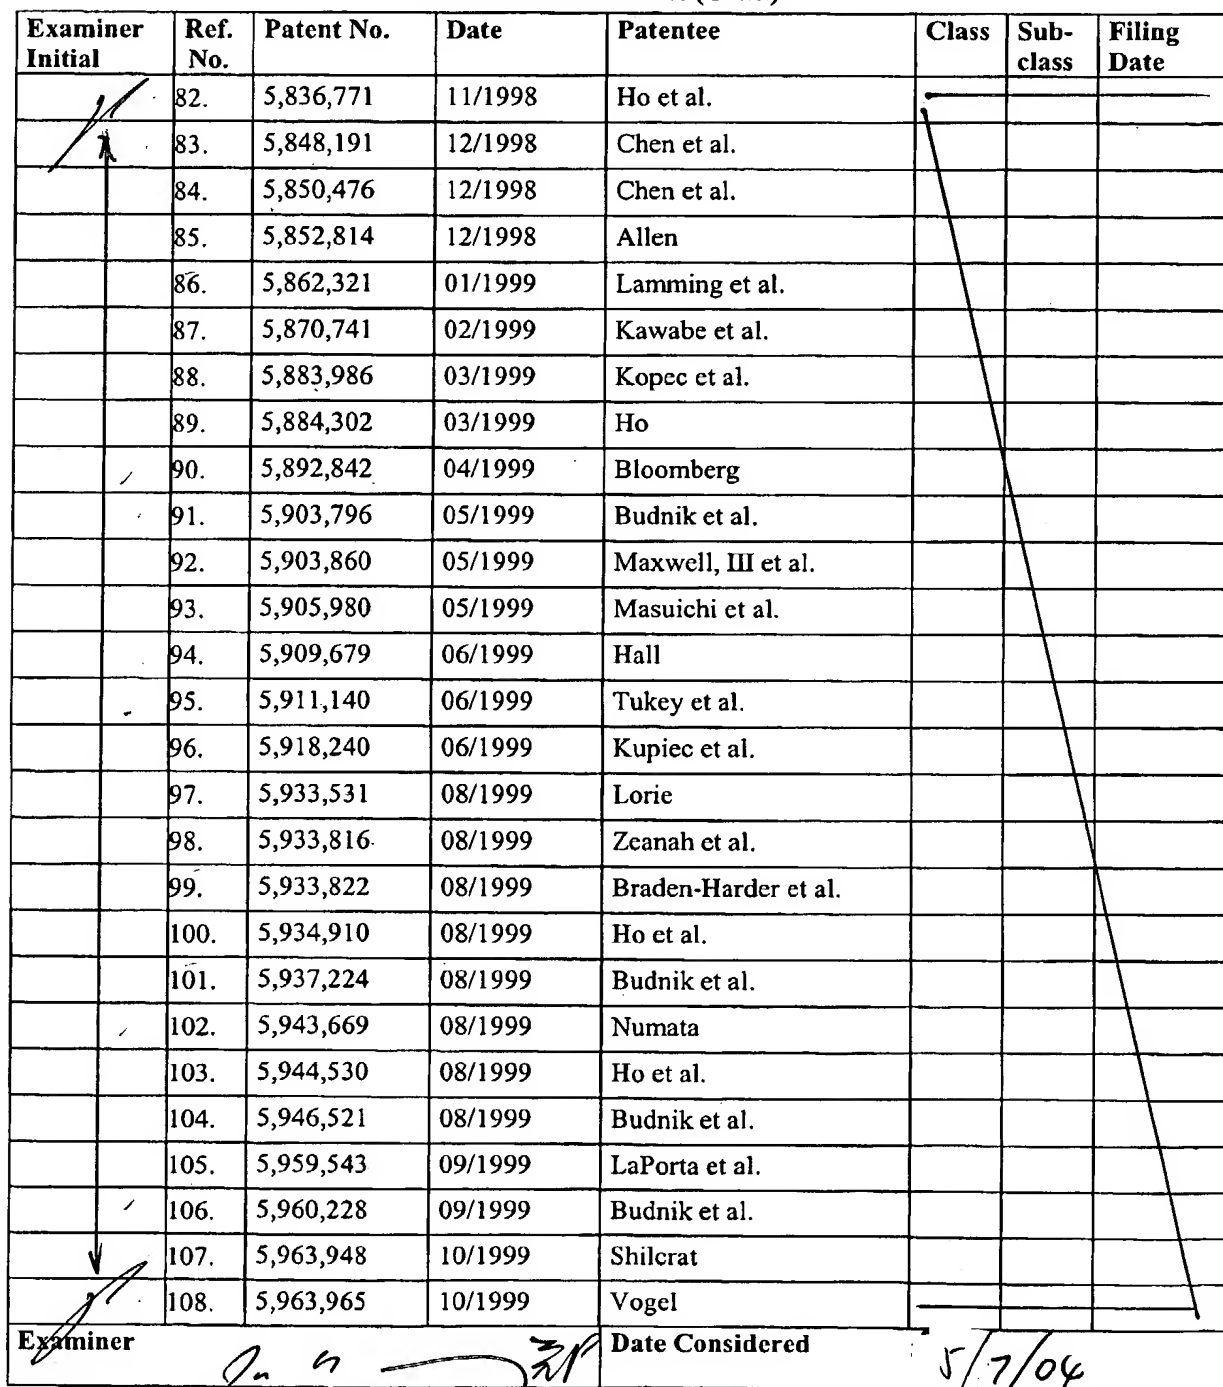 Examiner Initial Ref. No. Patent No. Date Patentee Class Sub-class Filing Date
82. 5,836,771 11/1998 Ho et al.
83. 5,848,191 12/1998 Chen et al.
84. 5,850,476 12/1998 Chen et al.
85. 5,852,814 12/1998 Allen
86. 5,862,321 01/1999 Lamming et al.
87. 5,870,741 02/1999 Kawabe et al.
88. 5,883,986 03/1999 Kopec et al.
89. 5,884,302 03/1999 Ho
90. 5,892,842 04/1999 Bloomberg
91. 5,903,796 05/1999 Budnik et al.
92. 5,903,860 05/1999 Maxwell, III et al.
93. 5,905,980 05/1999 Masuichi et al.
94. 5,909,679 06/1999 Hall
95. 5,911,140 06/1999 Tukey et al.
96. 5,918,240 06/1999 Kupiec et al.
97. 5,933,531 08/1999 Lorie
98. 5,933,816 08/1999 Zeanah et al.
99. 5,933,822 08/1999 Braden-Harder et al.
100. 5,934,910 08/1999 Ho et al.
101. 5,937,224 08/1999 Budnik et al.
102. 5,943,669 08/1999 Numata
103. 5,944,530 08/1999 Ho et al.
104. 5,946,521 08/1999 Budnik et al.
105. 5,959,543 09/1999 LaPorta et al.
106. 5,960,228 09/1999 Budnik et al.
107. 5,963,948 10/1999 Shilcrat
108. 5,963,965 10/1999 Vogel
Examiner Date Considered 5/7/04